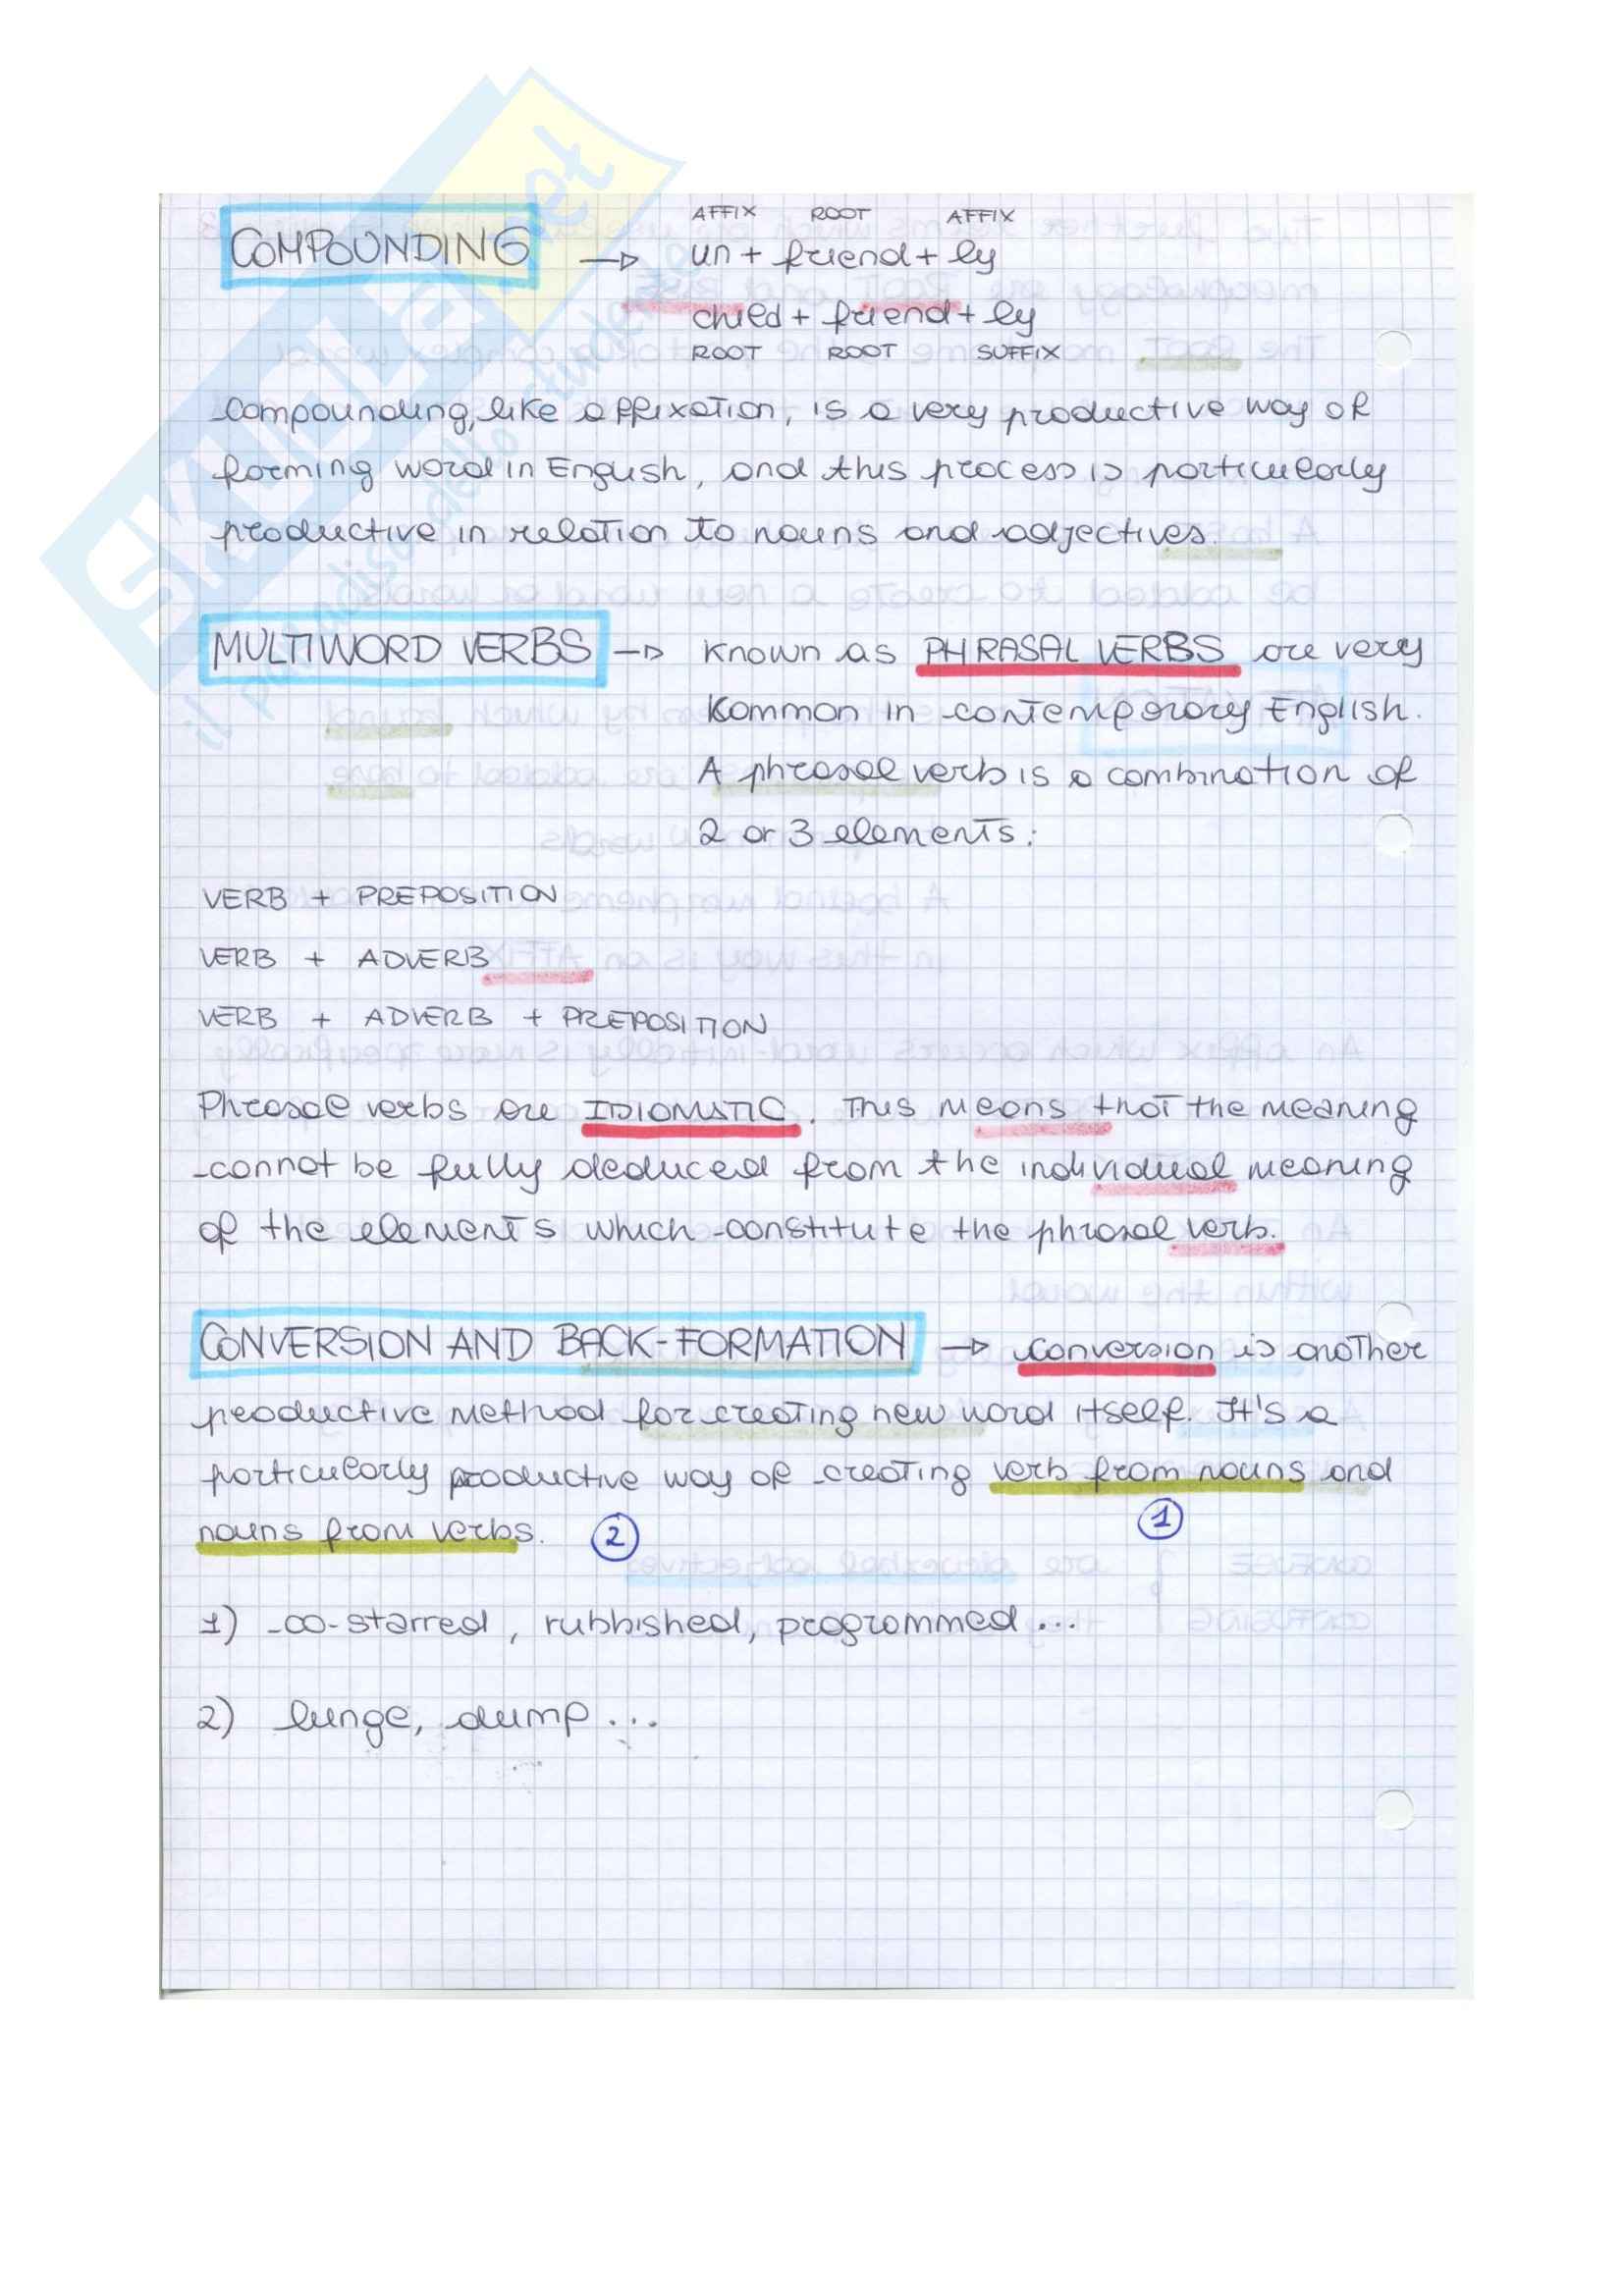 AFFIX ROOT AFFIX
COMPOUNDING → un + friend + ly
child + friend + ly
ROOT ROOT SUFFIX
Compounding, like affixation, is a very productive way of
forming word in English, and this process is particularly
productive in relation to nouns and adjectives.
MULTIWORD VERBS → Known as PHRASAL VERBS are very
Kommon in contemporary English.
A phrasal verb is a combination of
2 or 3 elements:
VERB + PREPOSITION
VERB + ADVERB
VERB + ADVERB + PREPOSITION
Phrasal verbs are IDIOMATIC. This means that the meaning
cannot be fully deduced from the individual meaning
of the elements which constitute the phrasal verb.
CONVERSION AND BACK-FORMATION → Conversion is another
productive method for creating new word itself. It's a
particularly productive way of creating verb from nouns and
1
nouns from verbs. 2
1) co-starred, rubbished, programmed...
2) lunge, dump...
SKUOLA.net